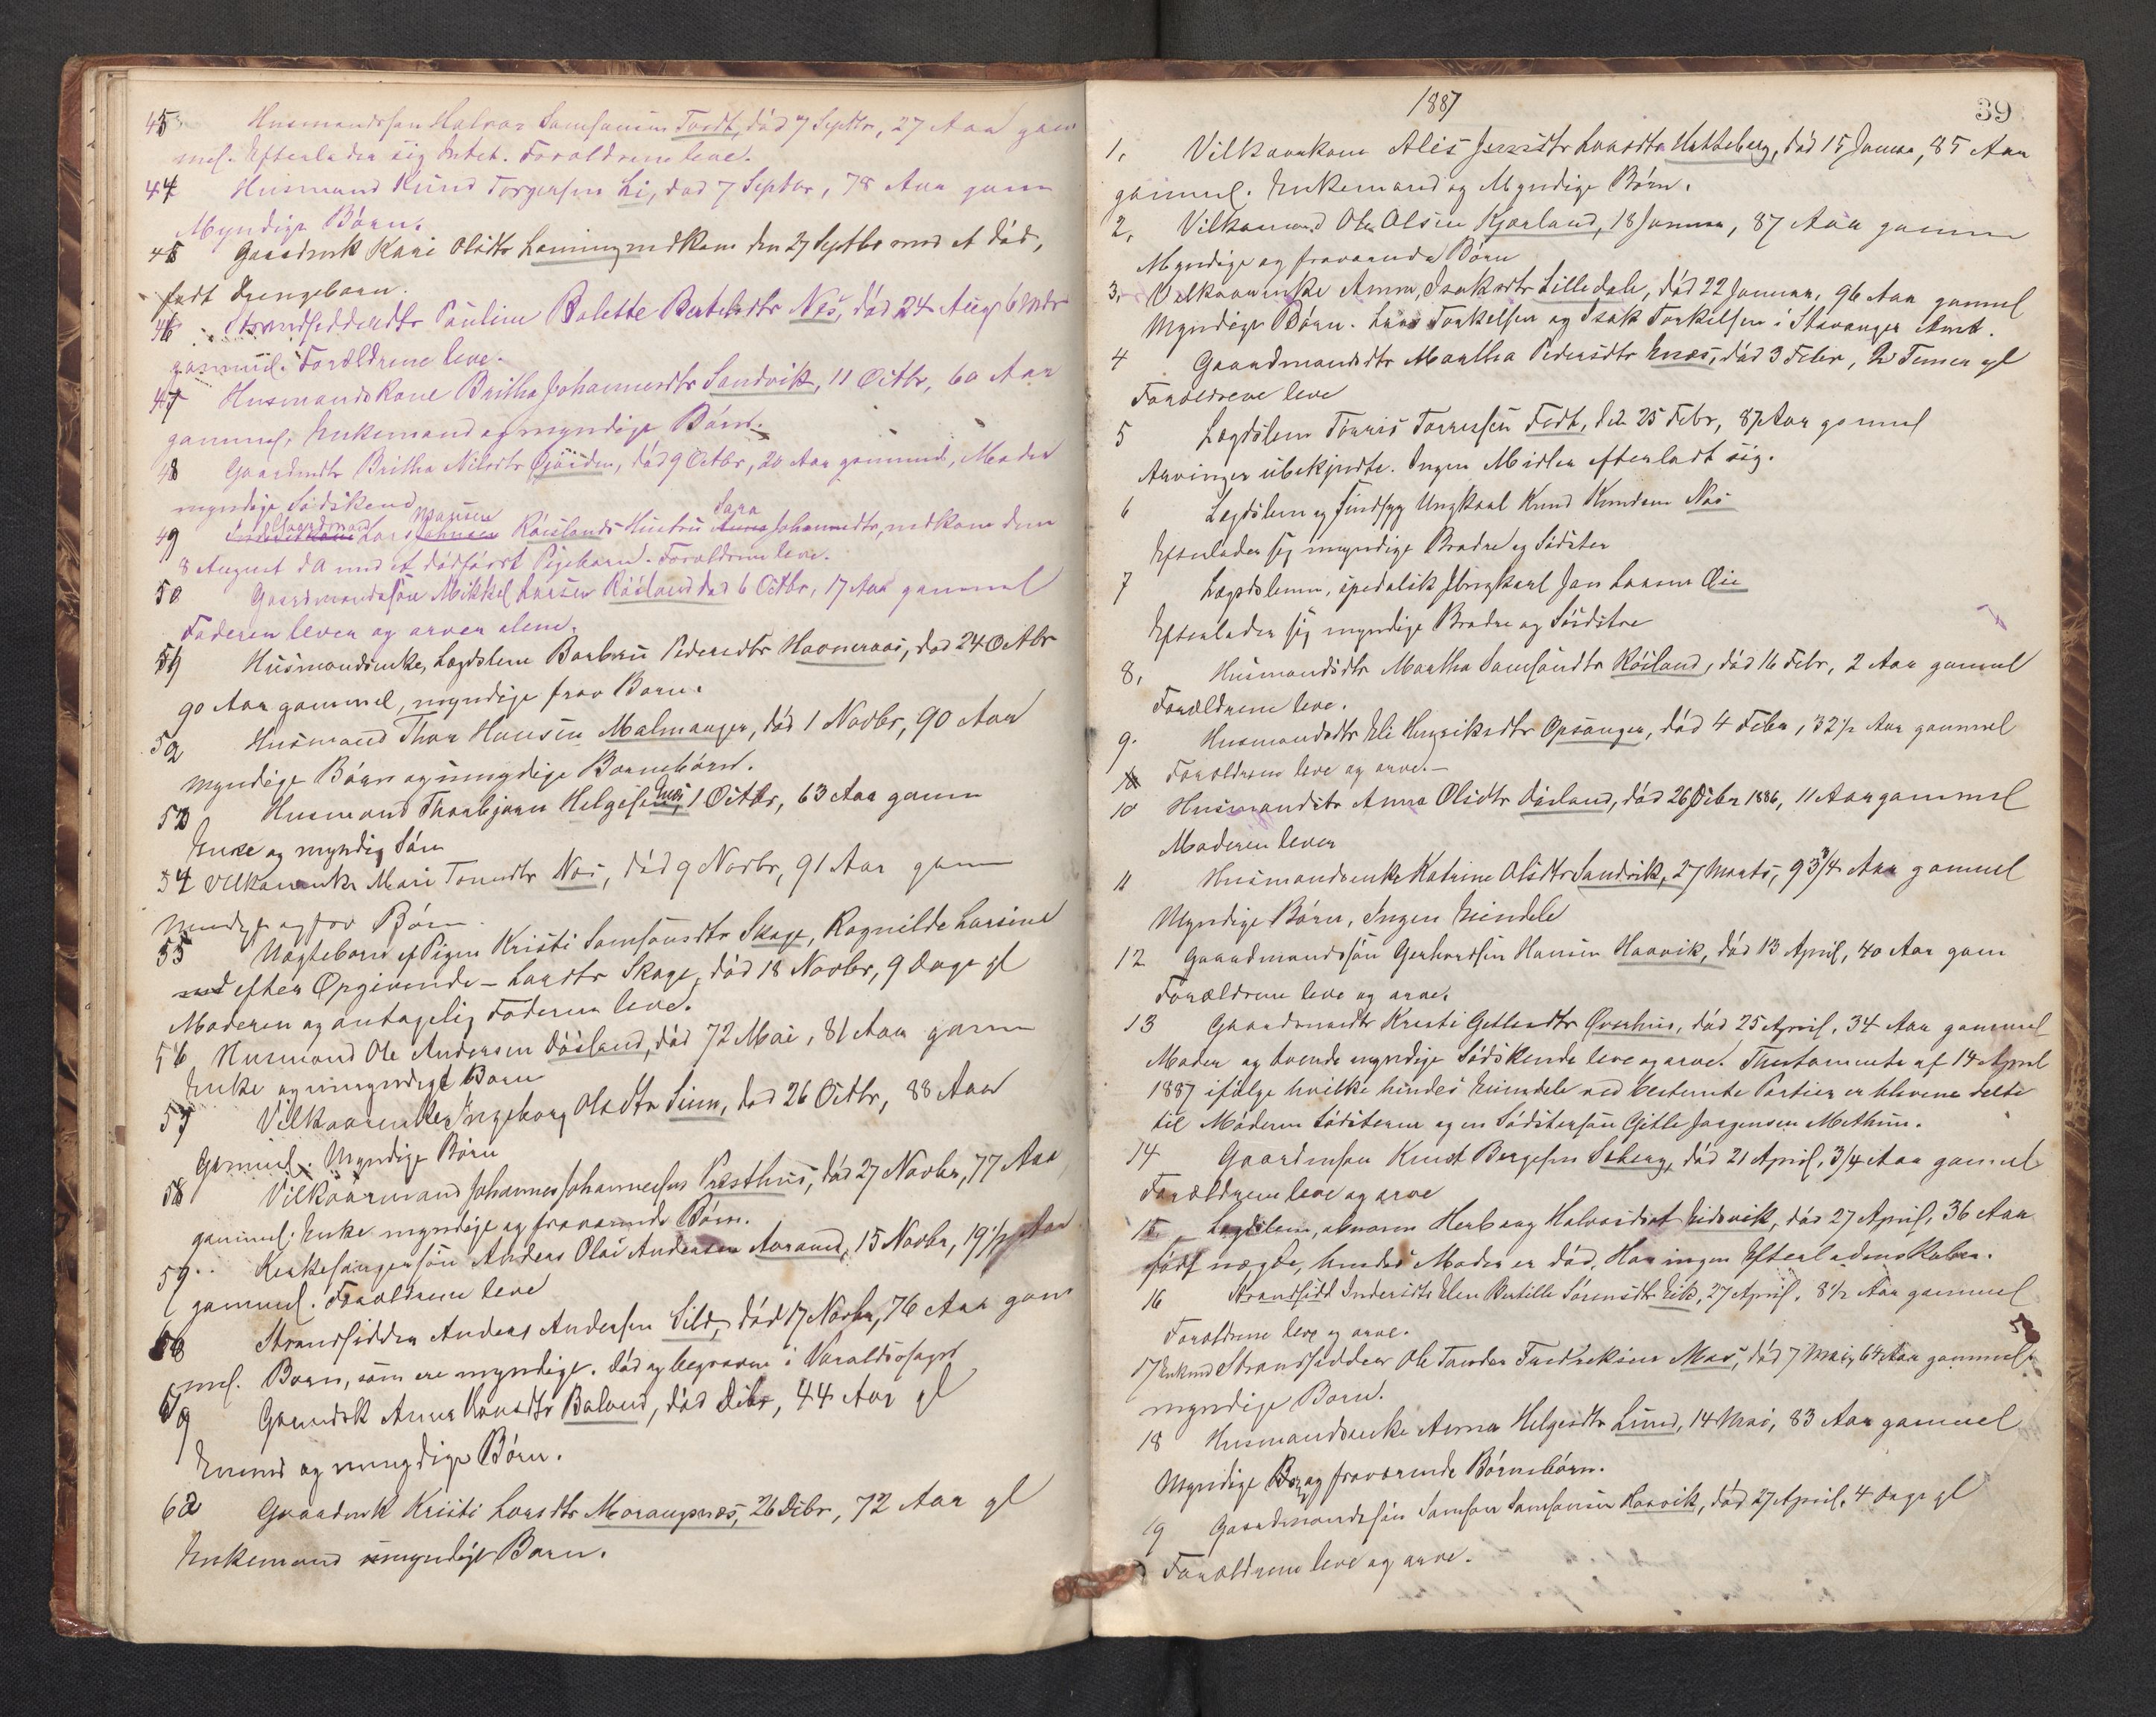 45 Husmandssøn Halvor Samsonsen Tvedt, død 7 Septbr, 27 Aar gam
mel. Efterlader sig Intet. Forældrene leve.
44 Husmand Knud Torgersen Li, død 7 Septbr, 78 Aar gam
Myndige Børn.
45 Gaardmk Kari Olsdtr nedkom den 27 Septbr med et død,
født Drengebarn.
46 Strandsidderdtr Pauline Bolette Bertelsdtr Næs, død 24 Aug 6 Mdr
gammel. Forældrene leve.
47 Husmandskone Britha Johannesdtr Sandvik, 11 Octbr, 60 Aar
gammel, Enkemand og myndige Børn.
48 Gaardmdtr Britha Nilsdtr, død 9 Octbr, 20 Aar gammel, Moder
myndige Sødskend
Gaardmand Mansen Sara
49 Lars Johnsen Røislands Hustru Anna Johannesdtr, nedkom den
8 August d A med et dødfødt Pigebarn. Forældrene leve.
50 Gaardmandssøn Mikkel Larsen Røisland død 6 Octbr, 17 Aar gammel
Faderen lever og arver alene.
51 Husmandsenke, Lægdslem Barbru Pedersdtr Havneraas, død 24 Octbr
90 Aar gammel, myndige frav Børn.
52 Husmand Thor Hansen Malmanger, død 1 Novbr, 90 Aar
myndige Børn og umyndige Børnebørn.
53 Husmand Thorbjørn Helgesen Enæs, 1 Octbr, 63 Aar gam
Enke og myndig Søn
54 Vilkaarenke Mari Tormdtr Næs, død 9 Novbr, 91 Aar gam
myndige og frav Børn.
55 Uægtebarn af Pigen Kristi Samsonsdtr Skage, Ragnilde Larsine
efter Opgivende - Larsdtr Skage, død 18 Novbr, 9 Dage gl
Moderen og antagelig Faderen leve.
56 Husmand Ole Andersen Døsland, død 72 Mai, 81 Aar gam
Enke og umyndigt Barn
57 Vilkaarenke Ingeborg Olsdtr Sunn, død 26 Octbr, 88 Aar
gammel. Myndige Børn
58 Vilkaarmand Johannes Johannessen Præsthus, død 27 Novbr, 77 Aar
gammel. Enke myndige og fraværende Børn.
59 Kirkesangersøn Anders Olai Andersen, 15 Novbr, 19 1/2 Aar
gammel. Forældrene leve
60 Strandsidder Anders Andersen Sild, død 17 Novbr, 76 Aar gam
mel. Børn, som ere myndige. Død og begraven i Varaldsøsogn
59 Gaardmk Anna Baland, død Dcbr, 44 Aar gl
Enkemd og umyndige Børn.
60 Gaardmk Kristi Larsdtr Morangsnæs, 26 Dcbr, 72 Aar gl
Enkemand umyndige Børn.
1887
39
1, Vilkaarkone Alis Larsdtr Hatteberg, død 15 Januar, 85 Aar
gammel. Enkemand og Myndige Børn.
2, Vilkaarmand Ole Olsen Kjærland, 18 Januar, 87 Aar gammel
Myndige og fraværende Børn
3, Vilkaarenke Anna Isaksdtr Lilledale, død 22 Januar, 96 Aar gammel
Myndige Børn. Lars Torkelsen og Isak Torkelsen i Stavanger Amt.
4 Gaardmandsdtr Martha Pedersdtr Enæs, død 3 Febr, 2 Timer gl
Forældrene leve
5 Lægdslem Torris Torrisen Tvedt, den 25 Febr, 87 Aar gammel
Arvinger ubekjendte. Ingen Midler efterladt sig.
6 Lægdslem og Sindsyg Ungkarl Knud Knudsen Næs
Efterlader sig myndige Brødre og Søster
7 Lægdslem, spedalsk Ungkarl Jon Larsen Øie
Efterlader sig myndige Brødre og Sødstre
8, Husmandsdtr Martha Samsondtr Røisland, død 16 Febr, 2 Aar gammel
Forældrene leve.
9. Husmandsdtr Eli Henriksdtr Opsanger, død 4 Febr, 32 1/2 Aar gammel
10 Forældrene leve og arve. -
10 Husmandsdtr Anna Olsdtr Døsland, død 26 Dcbr 1886, 11 Aar gammel
Moderen lever
11 Husmandsenke Katrine Olsdtr Sandvik, 27 Marts, 93 3/4 Aar gammel
Myndige Børn, Ingen Eiendele
12 Gaardmandssøn Gerhardsen Hansen Haavik, død 13 April, 40 Aar gam
Forældrene leve og arve.
13 Gaardmandsdtr Kristi Gitlesdtr Øvrehus, død 25 April, 34 Aar gammel
Moder og tvende myndige Sødskende leve og arve. Thestamente af 14 April
1887 ifølge hvilke hendes Eiendele ved bestemte Partier er blevene delte
til Moderen Sødsteren og en Sødstersøn Gitle Jørgensen Methun.
14 Gaardmsøn Knut Bergesen Seberg, død 21 April, 3/4 Aar gammel
Forældrene leve og arve
15 Lægdslem, Herborg Halvorsdtr Eidsvik, død 27 April, 36 Aar
født uægte, hendes Moder er død, Har ingen Efterladenskaber.
16 Strandsidd Indersdtr Elen Bertille Sørensdtr Eik, 27 April, 8 1/2 Aar gammel
Forældrene leve og arve.
17 Enkmd Strandsidder Ole Tander Fredriksen Næs, død 7 Mai, 64 Aar gammel.
myndige Børn.
18 Husmandsenke Anna Helgesdtr Lund, 14 Mai, 83 Aar gammel
Myndige Børn og fraværende Børnebørn.
19 Gaardmandssøn Samson Samsonsen Haavik, død 27 April, 4 Dage gl
Forældrene leve og arve.